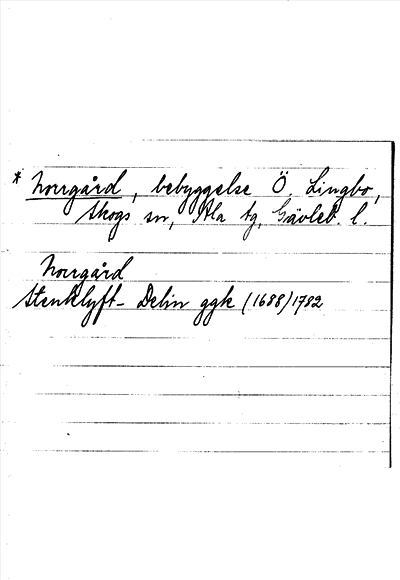 * Norrgård, bebyggelse Ö. Lingbo,
Skogs sn, Ala tg, Gävleb. l.
Norrgård
Stenklyft- Delin ggk (1688) 1782